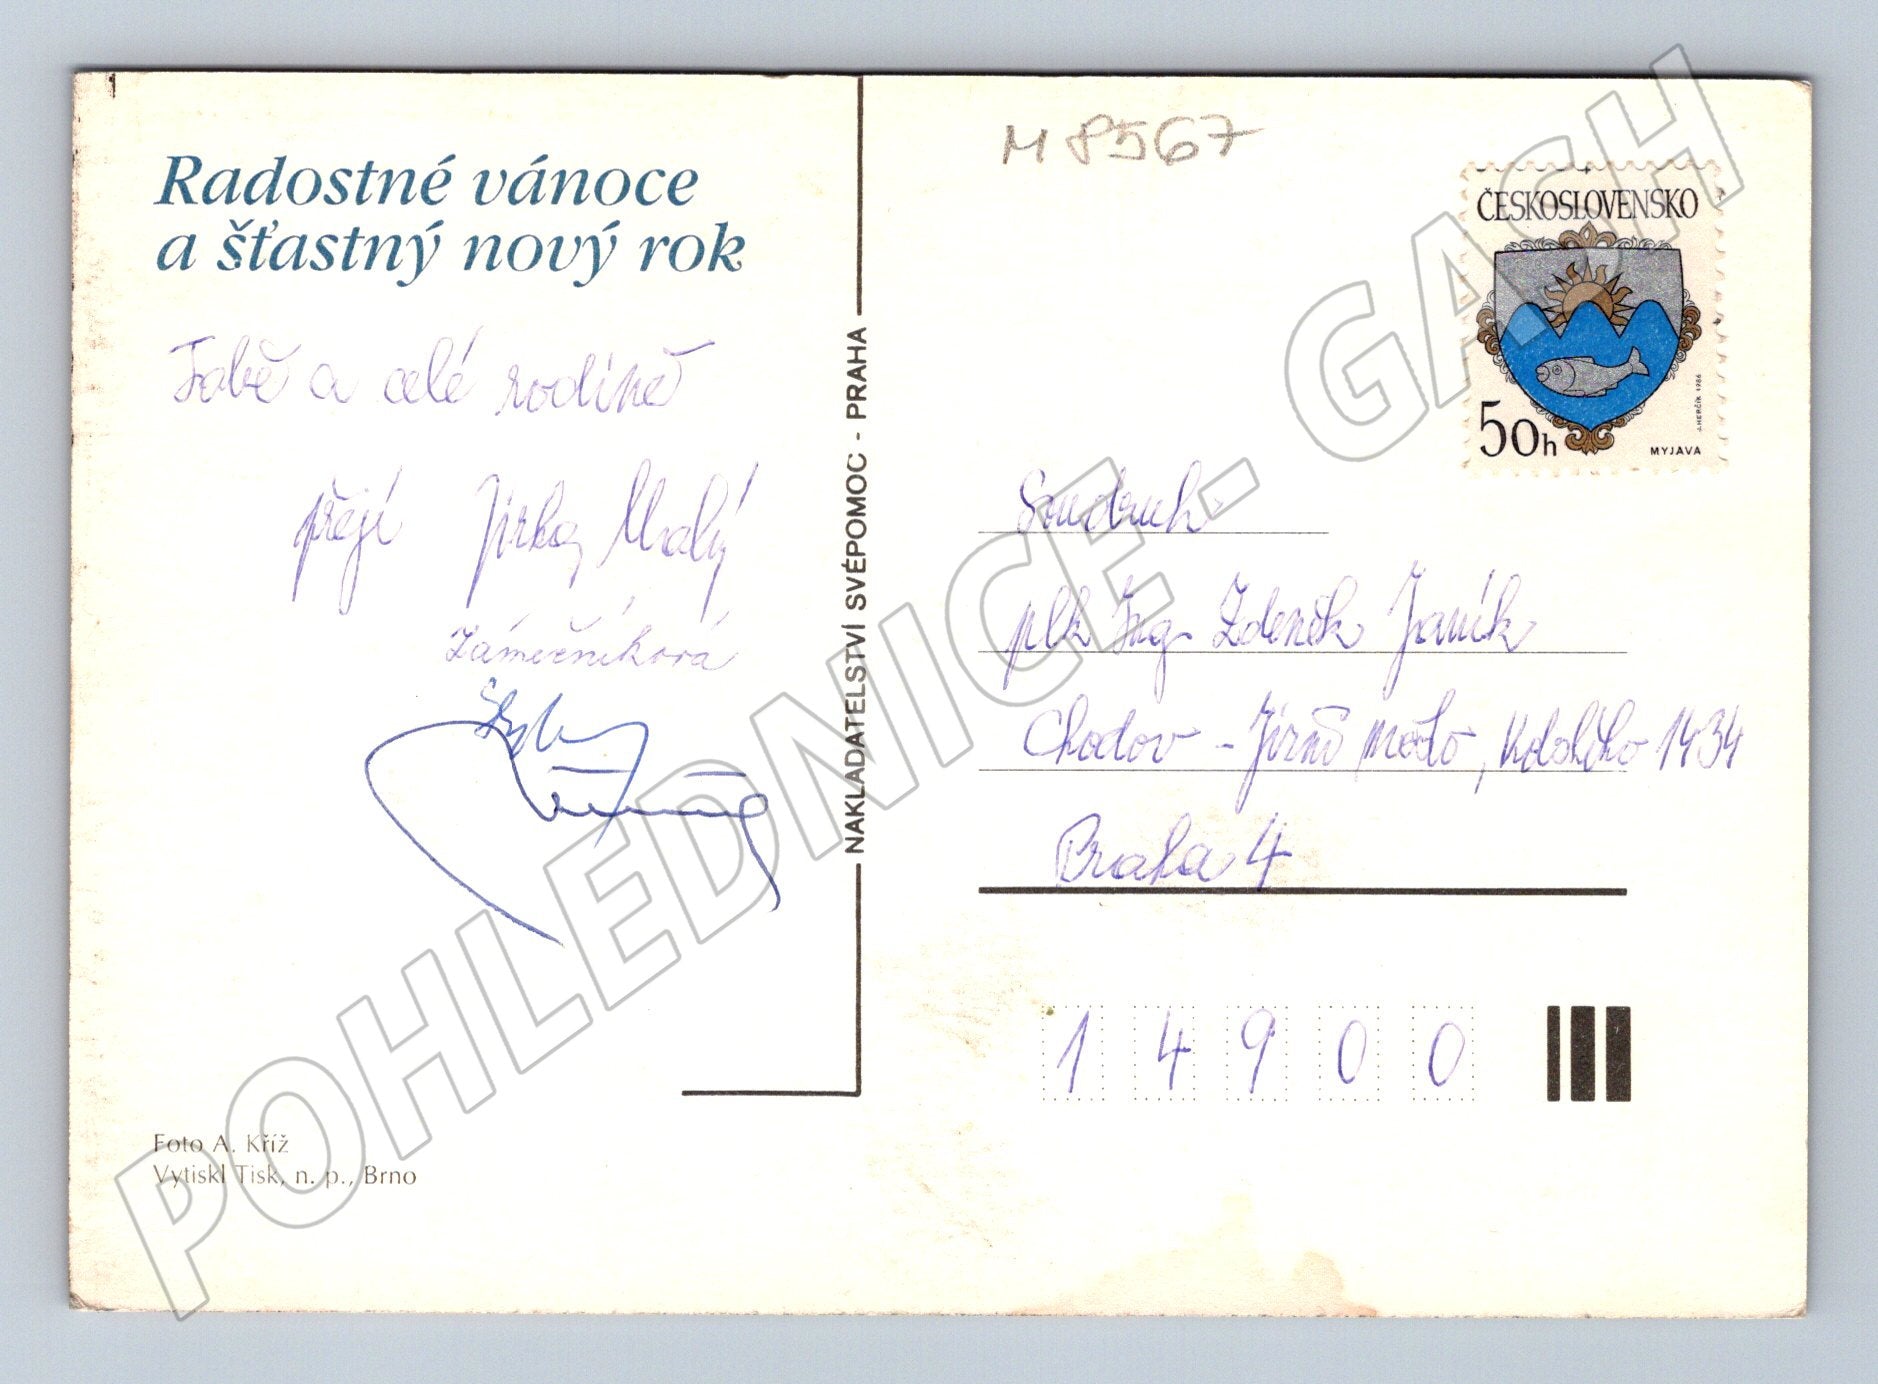 Radostné vánoce
a šťastný nový rok
Tobě a celé rodině
přejí Jirka Malý
Zámečníková
NAKLADATELSTVÍ SVÉPOMOC - PRAHA
Foto A. Kříž
Vytiskl Tisk, n. p., Brno
M 8567
ČESKOSLOVENSKO
50h
MYJAVA
J. HERČÍK 1986
Soudruh
plk Ing Zdeněk Janík
Chodov - Jižní Město, 1434
Praha 4
14900
POHLEDNICE - GASH